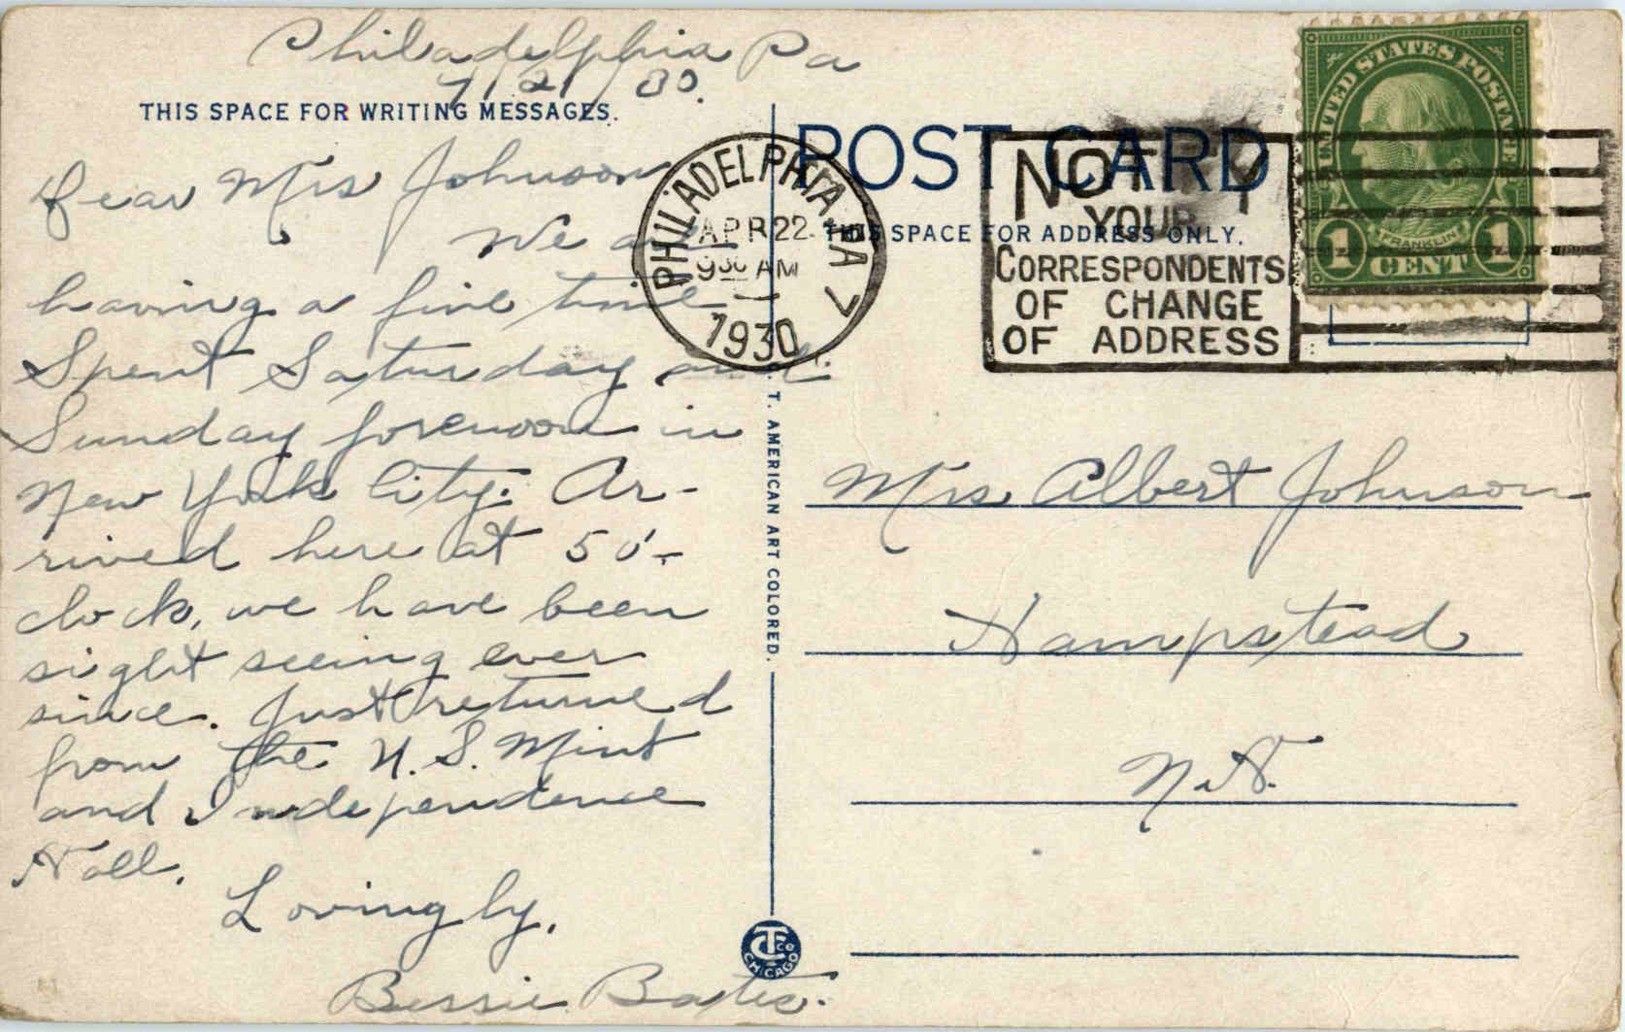 Philadelphia Pa
THIS SPACE FOR WRITING MESSAGES.
Dear Mrs Johnson
We are
having a fine time
Spent Saturday and
Sunday forenoon in
New York City. Ar-
rived here at 5 o'-
clock, we have been
sight seeing ever
since. Just returned
from the U.S. Mint
and Independence
Hall.
Lovingly,
Bessie Bates.
C. T. AMERICAN ART COLORED.
CT CO
CHICAGO
POST CARD
THIS SPACE FOR ADDRESS ONLY.
PHILADELPHIA, PA
APR 22
9 30 AM
1930
7
NOTIFY
YOUR
CORRESPONDENTS
OF CHANGE
OF ADDRESS
UNITED STATES POSTAGE
FRANKLIN
1 CENT 1
Mrs Albert Johnson
Hampstead
N.H.